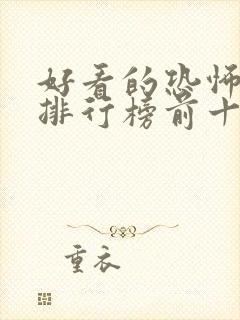 好看的恐怖
排行榜前十
重衣